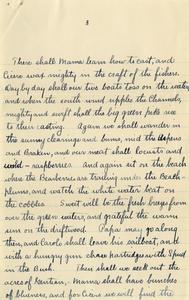 3
There shall Mama learn how to cast, and
Cicero wax mighty in the craft of the fishers.
Day by day shall our two boats toss on the water,
and when the south wind ripples the Channels,
mighty and swift shall the big green pike see
to their casting. Again we shall wander in
the sunny clearings and burns, mid the Aspens
and Braken, and our meat shall locusts and
wild raspberries. And again sit on the beach
when the Beahens are trailing under the Beach-
plums, and watch the white water beat on
the cobbles. Sweet will be the fresh breezes from
over the green waters, and grateful the warm
sun on the driftwood. Papa may go along
then, and Carols shall leave his sailboat, and
with a hungry gun chase Partridges with Spud
in the Bush. Then shall we seek out the
acres of Mama shall have bunches
of bluenes, and for Cicero we will find the